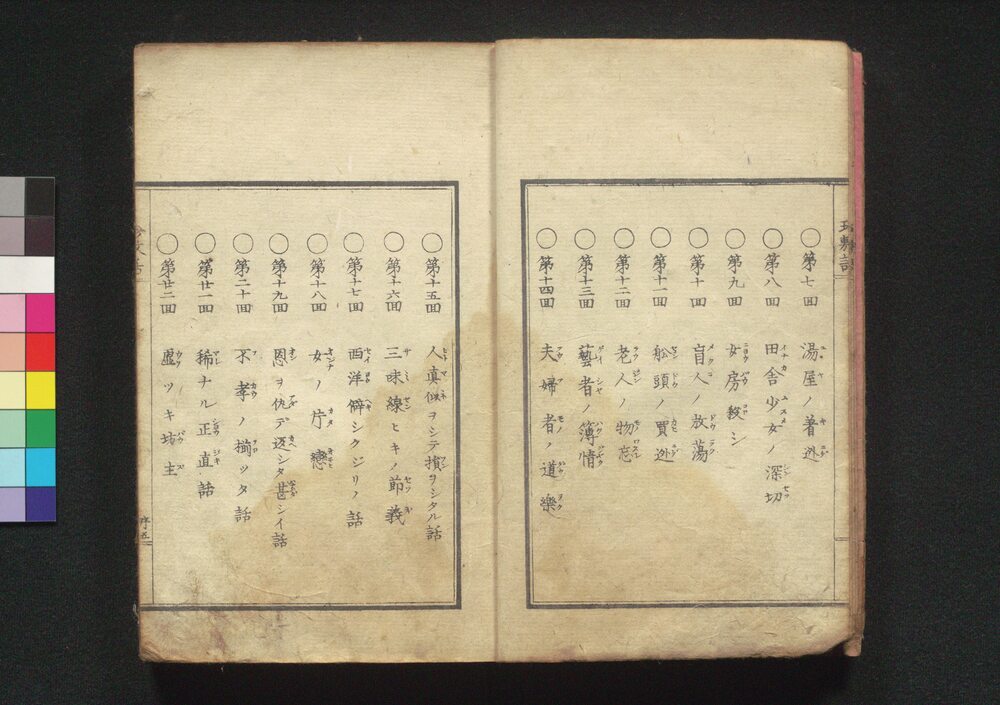 ○第七回 湯屋ノ着逃
○第八回 田舎少女ノ深切
○第九回 女房殺シ
○第十回 盲人ノ放蕩
○第十一回 舩頭ノ買逃
○第十二回 老人ノ物忘
○第十三回 藝者ノ薄情
○第十四回 夫婦者ノ道樂
○第十五回 人真似ヲシテ損ヲシタル話
○第十六回 三味線ヒキノ節義
○第十七回 西洋僻シクジリノ話
○第十八回 女ノ片戀
○第十九回 恩ヲ仇デ返シタ甚シイ話
○第二十回 不孝ノ揃ツタ話
○第廿一回 稀ナル正直話
○第廿二回 虚ツキ坊主
序五